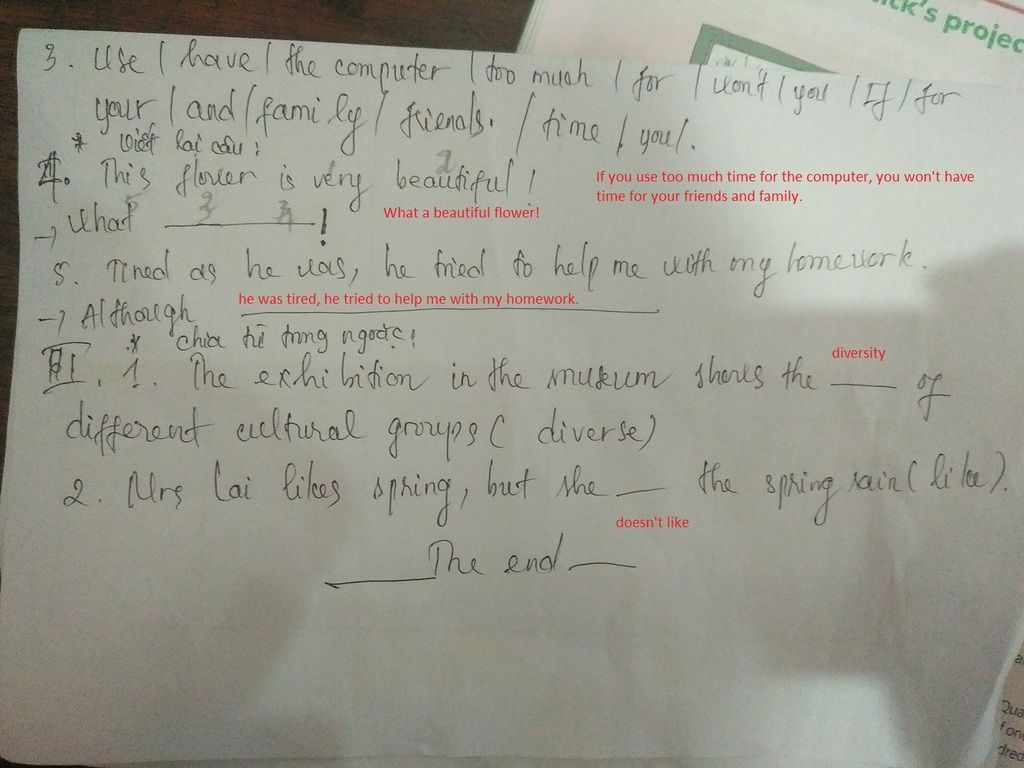 ck's project
3. Use / have / the computer / too much / for / won't / you / If / for
your / and / family / friends. / time / you /.
* Viết lại câu!
II. This flower is very beautiful!
If you use too much time for the computer, you won't have
time for your friends and family.
→ What ______!
What a beautiful flower!
5. Tired as he was, he tried to help me with my homework.
→ Although
he was tired, he tried to help me with my homework.
* chia từ trong ngoặc!
diversity
III. 1. The exhibition in the museum shows the ____ of
different cultural groups ( diverse)
2. Mrs Lai likes spring, but she ___ the spring rain ( like).
doesn't like
____ The end ____
Qua